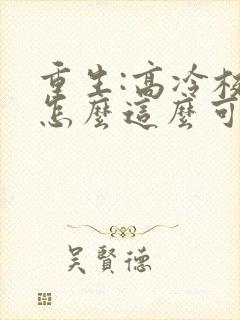 重生:高冷校
怎麼這麼可
吳賢德